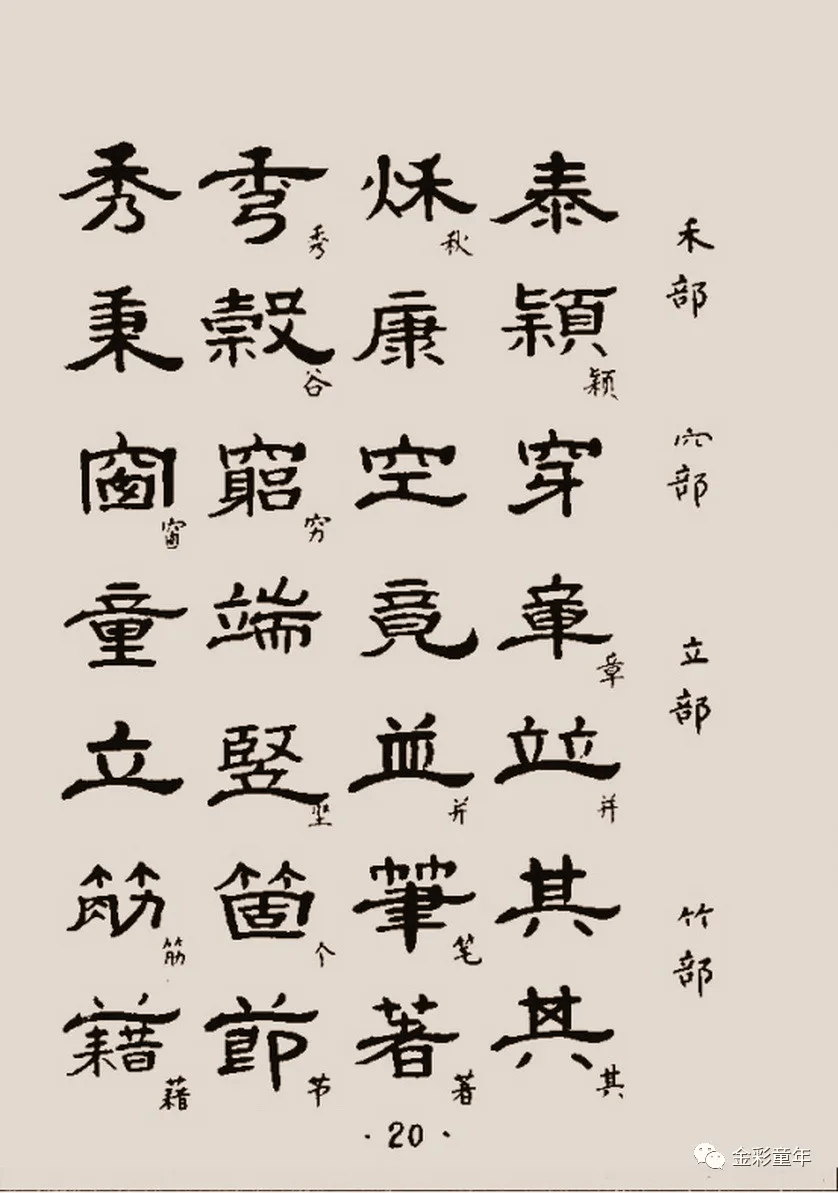 禾部
秀 秀 秌 泰
秀 秋
秉 穀 康 穎
谷 颖
穴部
窗 窮 空 穿
窗 穷
立部
童 端 竟 章
章
立 竪 並 竝
并 并
竹部
筋 箇 筆 其
筋 个 笔
藉 節 著 其
藉 节 著 其
·20·
金彩童年